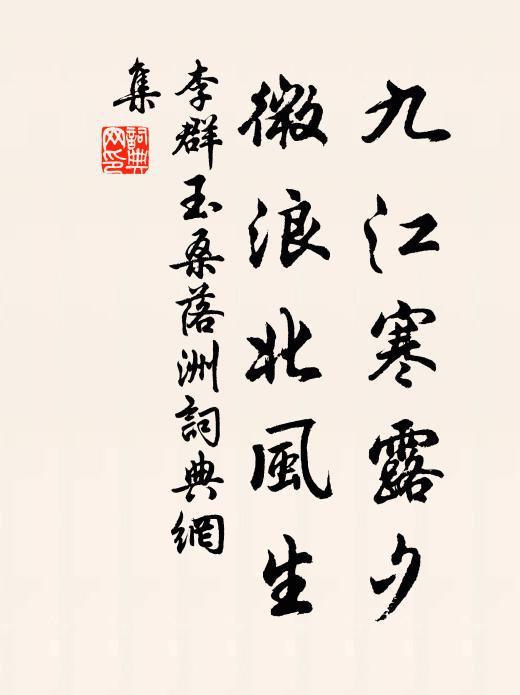 九江寒露夕
微浪北風生
李群玉桑落洲詞典網
集
詞典網印